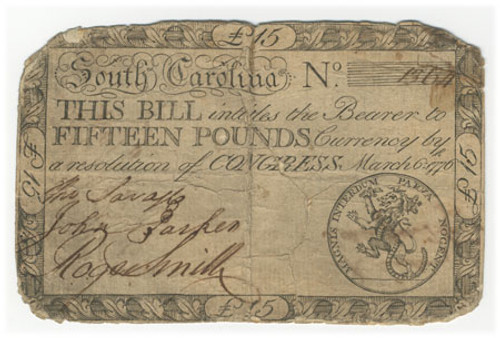 £15
South Carolina N.o
THIS BILL intitles the Bearer to
FIFTEEN POUNDS Currency by
a resolution of CONGRESS March 6. 1776
£15
£15
Savage
John Parker
Roger Smith
MAGNIS INTERDUM PARVA NOCENT
£15